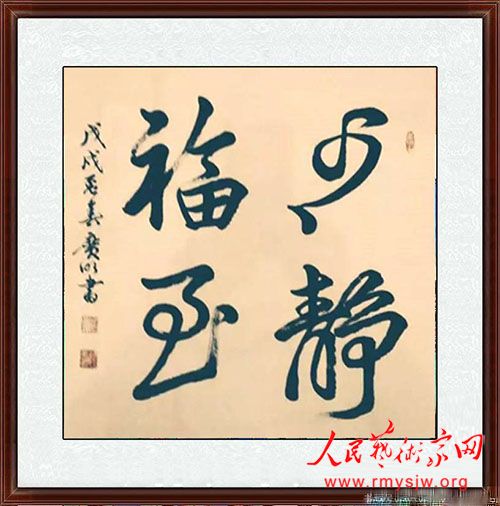 心静
福至
戊戌 春 明書
人民藝術家网
www.rmysjw.org